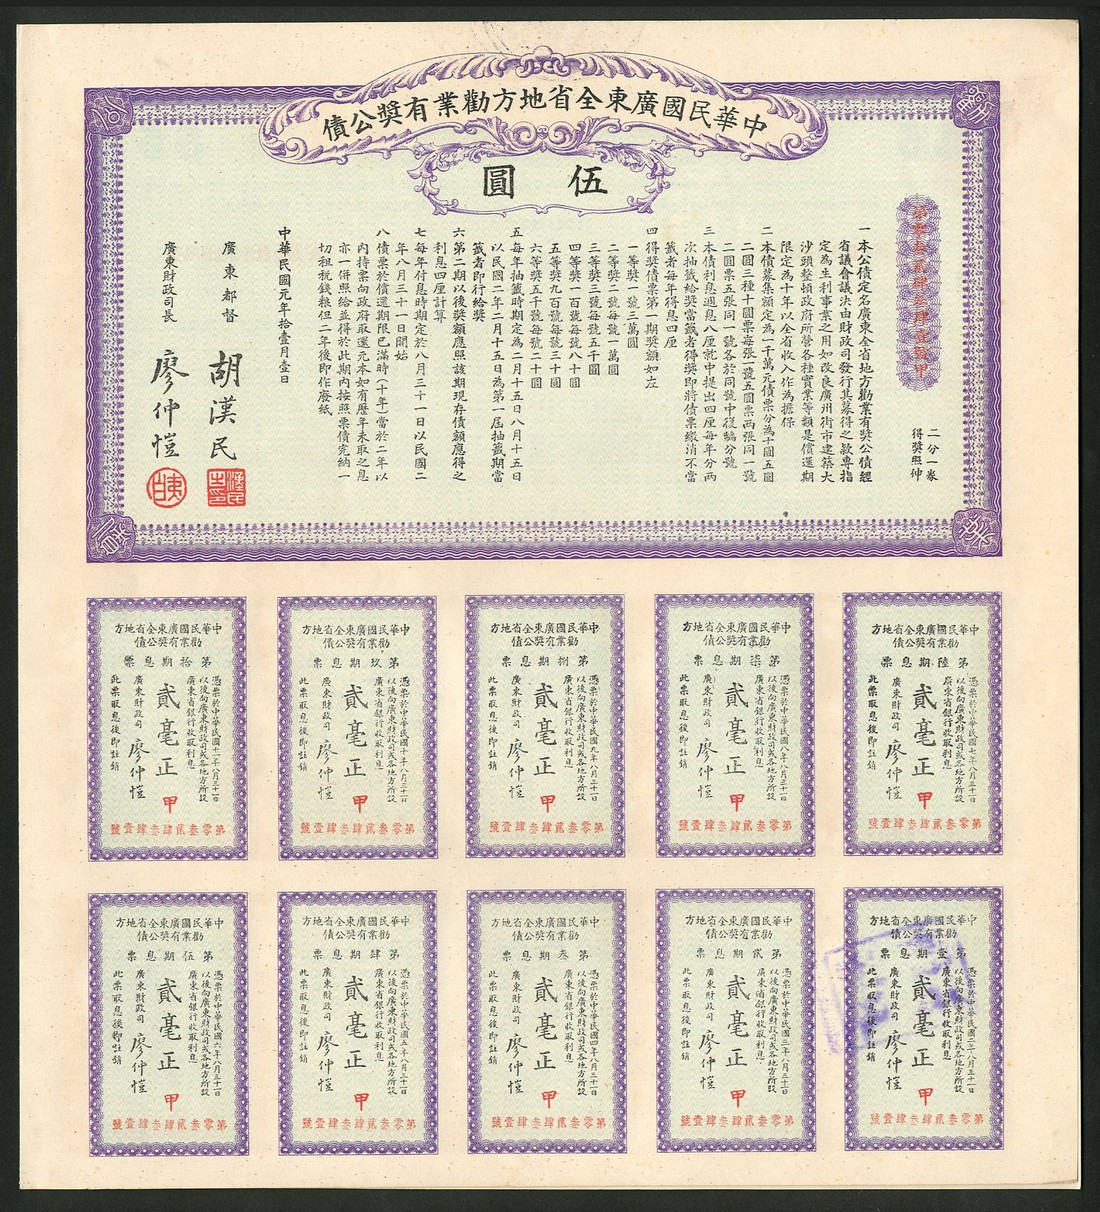 中華民國廣東全省地方勸業有獎公債
伍圓
二分一券
得獎照仲
一本公債定名廣東全省地方勸業有獎公債經
省議會議決由財政司發行其募得之款專指
定為生利事業之用如改良廣州街市建築大
沙頭整頓政府所營各種實業等類是償還期
限定為十年以全省收入作為擔保
二本債募集額定為一千萬元債票分為十圓五圓
二圓三種十圓票每張一號五圓票兩張同一號
二圓票五張同一號各於同號中復編分號
三本債利息週息八厘就中提出四厘每年分兩
次抽籤給獎當籤者得獎即將債票繳消不當
籤者每年得息四厘
四得獎債票第一期獎額如左
一等獎一號三萬圓
二等獎二號每號一萬圓
三等獎三號每號五千圓
四等獎一百號每號八十圓
五等獎九百號每號三十圓
六等獎五千號每號二十圓
五每年抽籤時期定為二月十五日八月十五日
以民國二年二月十五日為第一屆抽籤期當
籤者即行給獎
六第二期以後獎額應照該期現存債額應得之
利息四厘計算
七每年付息時期定於八月三十一日以民國二
年八月三十一日開始
八債票於償還期限已滿時(十年)當於二年以
內持票向政府取還元本如有歷年未取之息
亦一併照給並得於此期內按照票債完納一
切租稅錢糧但二年後即作廢紙
中華民國元年拾壹月壹日
廣東都督 胡漢民
廣東財政司長 廖仲愷
中華民國廣東全省地方
勸業有獎公債
第陸期息票
憑票於中華民國七年八月三十一日
以後向廣東財政司或各地方所設
廣東省銀行收取利息
貳毫正
廣東財政司 廖仲愷
此票取息後即註銷
甲
第零叁貳肆叁肆壹號
中華民國廣東全省地方
勸業有獎公債
第柒期息票
憑票於中華民國八年八月三十一日
以後向廣東財政司或各地方所設
廣東省銀行收取利息
貳毫正
廣東財政司 廖仲愷
此票取息後即註銷
甲
第零叁貳肆叁肆壹號
中華民國廣東全省地方
勸業有獎公債
第捌期息票
憑票於中華民國九年八月三十一日
以後向廣東財政司或各地方所設
廣東省銀行收取利息
貳毫正
廣東財政司 廖仲愷
此票取息後即註銷
甲
第零叁貳肆叁肆壹號
中華民國廣東全省地方
勸業有獎公債
第玖期息票
憑票於中華民國十年八月三十一日
以後向廣東財政司或各地方所設
廣東省銀行收取利息
貳毫正
廣東財政司 廖仲愷
此票取息後即註銷
甲
第零叁貳肆叁肆壹號
中華民國廣東全省地方
勸業有獎公債
第拾期息票
憑票於中華民國十一年八月三十一日
以後向廣東財政司或各地方所設
廣東省銀行收取利息
貳毫正
廣東財政司 廖仲愷
此票取息後即註銷
甲
第零叁貳肆叁肆壹號
中華民國廣東全省地方
勸業有獎公債
第壹期息票
憑票於中華民國二年八月三十一日
以後向廣東財政司或各地方所設
廣東省銀行收取利息
貳毫正
廣東財政司 廖仲愷
此票取息後即註銷
甲
第零叁貳肆叁肆壹號
中華民國廣東全省地方
勸業有獎公債
第貳期息票
憑票於中華民國三年八月三十一日
以後向廣東財政司或各地方所設
廣東省銀行收取利息
貳毫正
廣東財政司 廖仲愷
此票取息後即註銷
甲
第零叁貳肆叁肆壹號
中華民國廣東全省地方
勸業有獎公債
第叁期息票
憑票於中華民國四年八月三十一日
以後向廣東財政司或各地方所設
廣東省銀行收取利息
貳毫正
廣東財政司 廖仲愷
此票取息後即註銷
甲
第零叁貳肆叁肆壹號
中華民國廣東全省地方
勸業有獎公債
第肆期息票
憑票於中華民國五年八月三十一日
以後向廣東財政司或各地方所設
廣東省銀行收取利息
貳毫正
廣東財政司 廖仲愷
此票取息後即註銷
甲
第零叁貳肆叁肆壹號
中華民國廣東全省地方
勸業有獎公債
第伍期息票
憑票於中華民國六年八月三十一日
以後向廣東財政司或各地方所設
廣東省銀行收取利息
貳毫正
廣東財政司 廖仲愷
此票取息後即註銷
甲
第零叁貳肆叁肆壹號